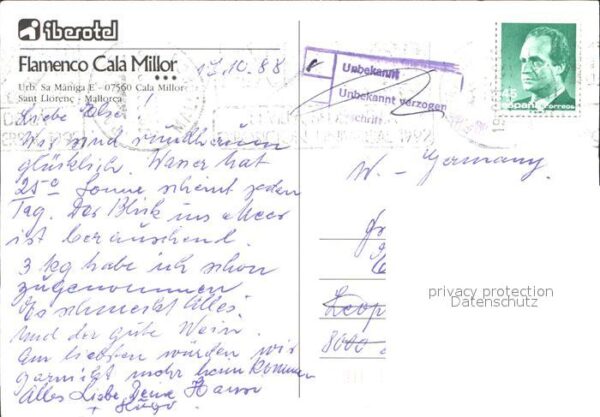 iberotel
Flamenco Cala Millor
Urb. Sa Màniga E - 07560 Cala Millor
Sant Llorenç - Mallorca
17.10.88
Liebe Else!
Wir sind rundherum
glücklich. Wasser hat
25° Sonne scheint jeden
Tag. Der Blick ins Meer
ist berauschend.
3 kg habe ich schon
zugenommen
Es schmeckt Alles.
Und der gute Wein.
Am liebsten würden wir
garnicht mehr heim kommen
Alles Liebe Deine
+ Hugo
Unbekannt
Unbekannt verzogen
schrift
1992
45
España correos
W - Germany
Leop
8000
privacy protection
Datenschutz